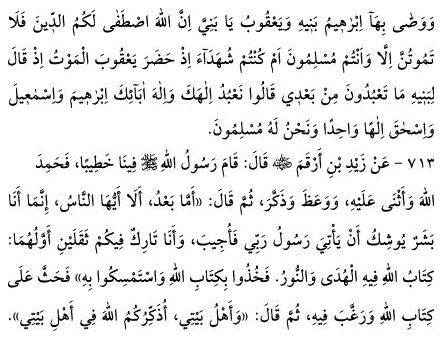 وَوَصّٰى بِهَآ اِبْرٰهٖيمُ بَنِيهِ وَيَعْقُوبُ يَا بَنِيَّ اِنَّ اللّٰهَ اصْطَفٰى لَكُمُ الدِّينَ فَلَا
تَمُوتُنَّ اِلَّا وَاَنْتُمْ مُسْلِمُونَ اَمْ كُنْتُمْ شُهَدَآءَ اِذْ حَضَرَ يَعْقُوبَ الْمَوْتُ اِذْ قَالَ
لِبَنِيهِ مَا تَعْبُدُونَ مِنْ بَعْدِي قَالُوا نَعْبُدُ اِلٰهَكَ وَاِلٰهَ اٰبَآئِكَ اِبْرٰهِيمَ وَاِسْمٰعِيلَ
وَاِسْحٰقَ اِلٰهًا وَاحِدًا وَنَحْنُ لَهُ مُسْلِمُونَ.
٧١٣ - عَنْ زَيْدِ بْنِ أَرْقَمَ ﷺ قَالَ: قَامَ رَسُولُ اللهِ ﷺ فِينَا خَطِيبًا، فَحَمِدَ
اللهَ وَأَثْنَى عَلَيْهِ، وَوَعَظَ وَذَكَّرَ، ثُمَّ قَالَ: «أَمَّا بَعْدُ، أَلَا أَيُّهَا النَّاسُ، إِنَّمَا أَنَا
بَشَرٌ يُوشِكُ أَنْ يَأْتِيَ رَسُولُ رَبِّي فَأُجِيبَ، وَأَنَا تَارِكٌ فِيكُمْ ثَقَلَيْنِ أَوَّلُهُمَا:
كِتَابُ اللهِ فِيهِ الْهُدَى وَالنُّورُ. فَخُذُوا بِكِتَابِ اللهِ وَاسْتَمْسِكُوا بِهِ» فَحَثَّ عَلَى
كِتَابِ اللهِ وَرَغَّبَ فِيهِ، ثُمَّ قَالَ: «وَأَهْلُ بَيْتِي، أُذَكِّرُكُمُ اللهَ فِي أَهْلِ بَيْتِي».